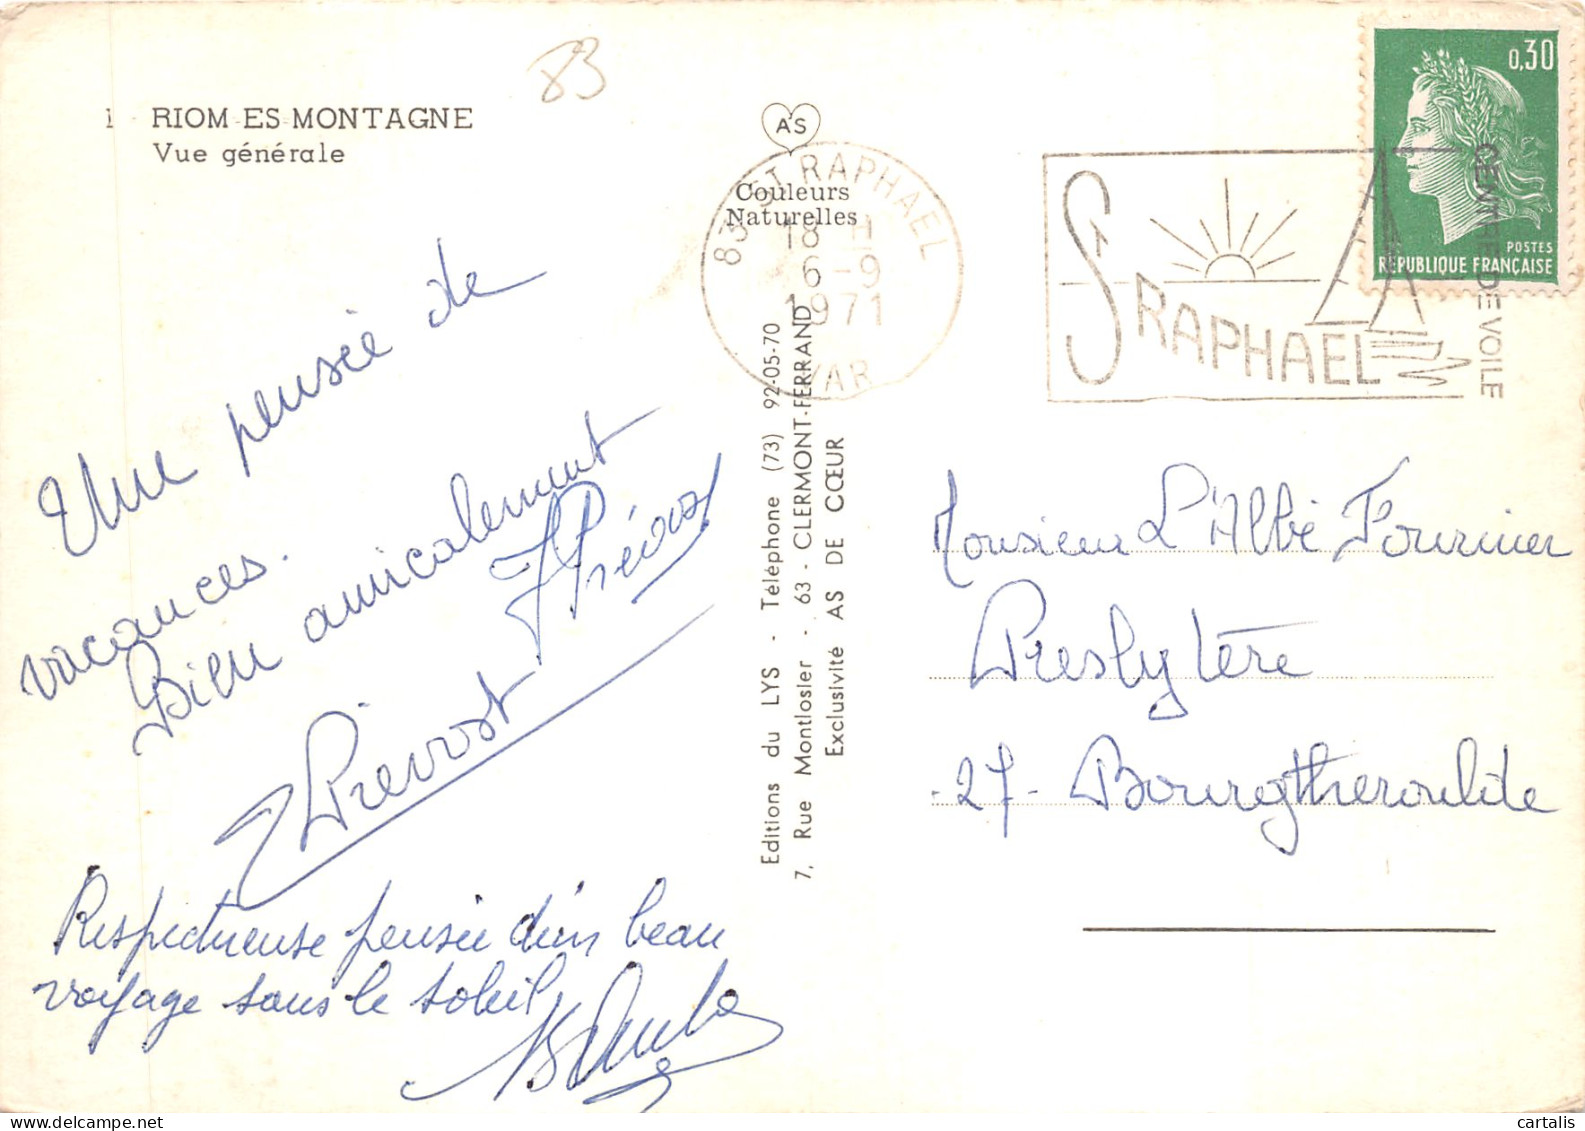 83
1 RIOM-ES-MONTAGNE
Vue générale
AS
Couleurs
Naturelles
83 ST RAPHAEL
18 H
6 -9
1971
VAR
ST RAPHAEL
CENTRE DE VOILE
0,30
POSTES
REPUBLIQUE FRANÇAISE
Une pensée de
vacances.
Bien amicalement
J Prévost
Prevost
Respectueuse pensée d'un beau
voyage sous le soleil
Editions du LYS - Téléphone (73) 92-05-70
7, Rue Montlosier - 63 - CLERMONT-FERRAND
Exclusivité AS DE CŒUR
Monsieur L'Abbé Fournier
Presbytère
-27- Bourgtheroulde
cartalis